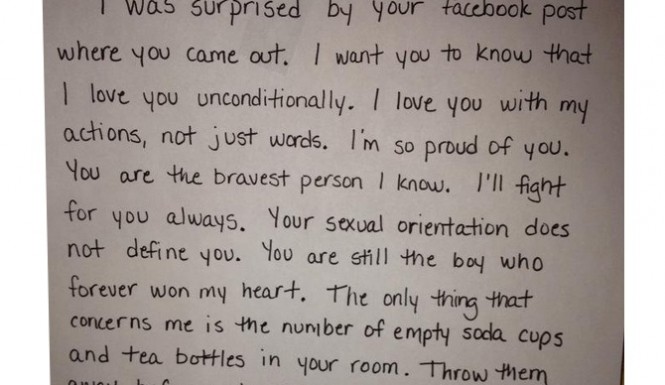 I was surprised by your facebook post
where you came out. I want you to know that
I love you unconditionally. I love you with my
actions, not just words. I'm so proud of you.
You are the bravest person I know. I'll fight
for you always. Your sexual orientation does
not define you. You are still the boy who
forever won my heart. The only thing that
concerns me is the number of empty soda cups
and tea bottles in your room. Throw them